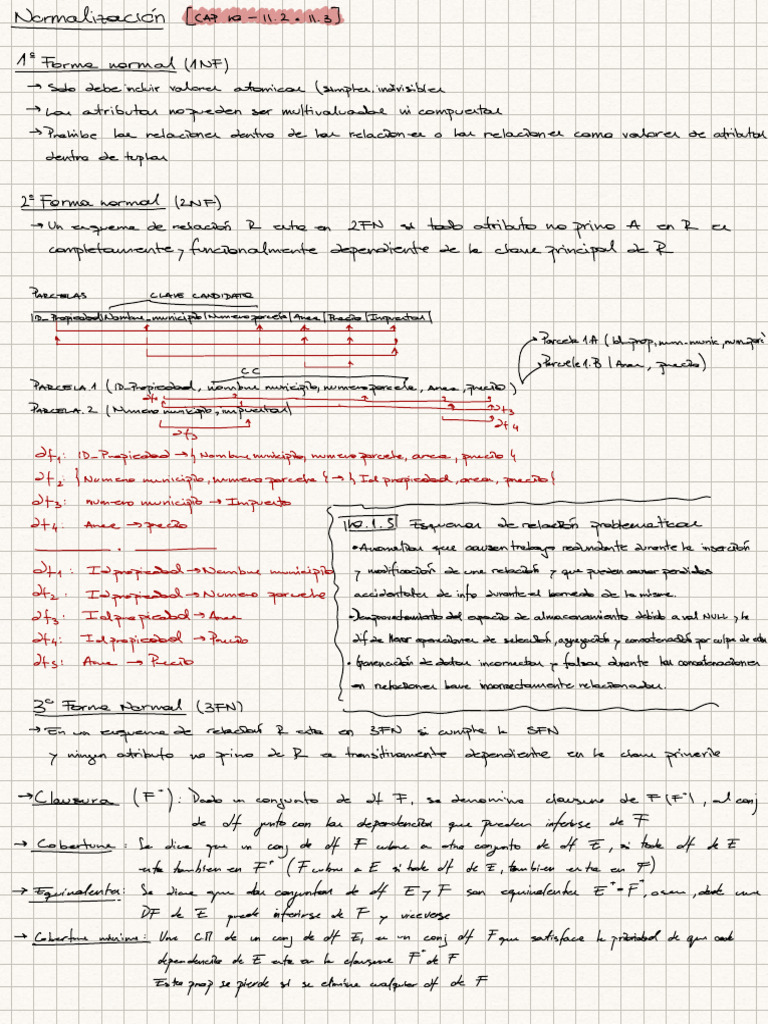 Normalización [CAP 10 - 11.2 • 11.3]
1ª Forma normal (1NF)
→ Solo debe incluir valores atomicos (simples, indivisibles
→ Los atributos no pueden ser multivaluados ni compuestos
→ Prohibe las relaciones dentro de las relaciones o las relaciones como valores de atributos
dentro de tuplas
2ª Forma normal (2NF)
→ Un esquema de relación R esta en 2FN si todo atributo no primo A en R es
completamente y funcionalmente dependiente de la clave principal de R
PARCELAS CLAVE CANDIDATO
ID_Propiedad|Nombre_municipio|Numero parcela|Area|Precio|Impuestos|
Parcela 1A (Id_prop, num_munic, num_par
Parcela 1.B (Area, precio)
CC
PARCELA 1 (ID_Propiedad, nombre municipio, numero parcela, area, precio)
PARCELA.2 (Numero municipio, impuestos)
df3
df4
df3
df1: ID_Propiedad → {Nombre municipio, numero parcela, area, precio}
df2: {Numero municipio, numero parcela} → {Id propiedad, area, precio}
df3: numero municipio → Impuesto
df4: Area → precio
df1: Id propiedad → Nombre municipio
df2: Id propiedad → Numero parcela
df3: Id propiedad → Area
df4: Id propiedad → Precio
df5: Area → Precio
10.1.5 Esquemas de relación problematicas
• Anomalias que causen trabajo redundante durante la inserción
y modificación de una relación y que pueden causar perdidas
accidentales de info durante el borrado de la misma.
• Desaprovechamiento del espacio de almacenamiento debido a val NULL, y la
df de llevar operaciones de selección, agregación y concatenación por culpa de
• Generación de datos incorrectos y falsos durante las concatenaciones
en relaciones base incorrectamente relacionadas.
3ª Forma Normal (3FN)
→ En un esquema de relación R esta en 3FN si cumple la SFN
y ningun atributo no primo de R es transitivamente dependiente en la clave primaria
→ Clausura (F⁺): Dado un conjunto de df F, se denomina clausura de F (F⁺), al conj
de df junto con las dependencias que pueden inferirse de F
→ Cobertura: Se dice que un conj de df F cubre a otro conjunto de df E, si toda df de E
esta tambien en F⁺ (F cubre a E si toda df de E, tambien esta en F)
→ Equivalentes: Se dice que dos conjuntos de df E y F son equivalentes E⁺=F⁺, o sea, donde una
DF de E puede inferirse de F y viceversa
→ Cobertura minima: Una CM de un conj de df E, es un conj df F que satisface la propiedad de que cada
dependencia de E esta en la clausura F⁺ de F
Esta prop se pierde si se elimina cualquier df de F